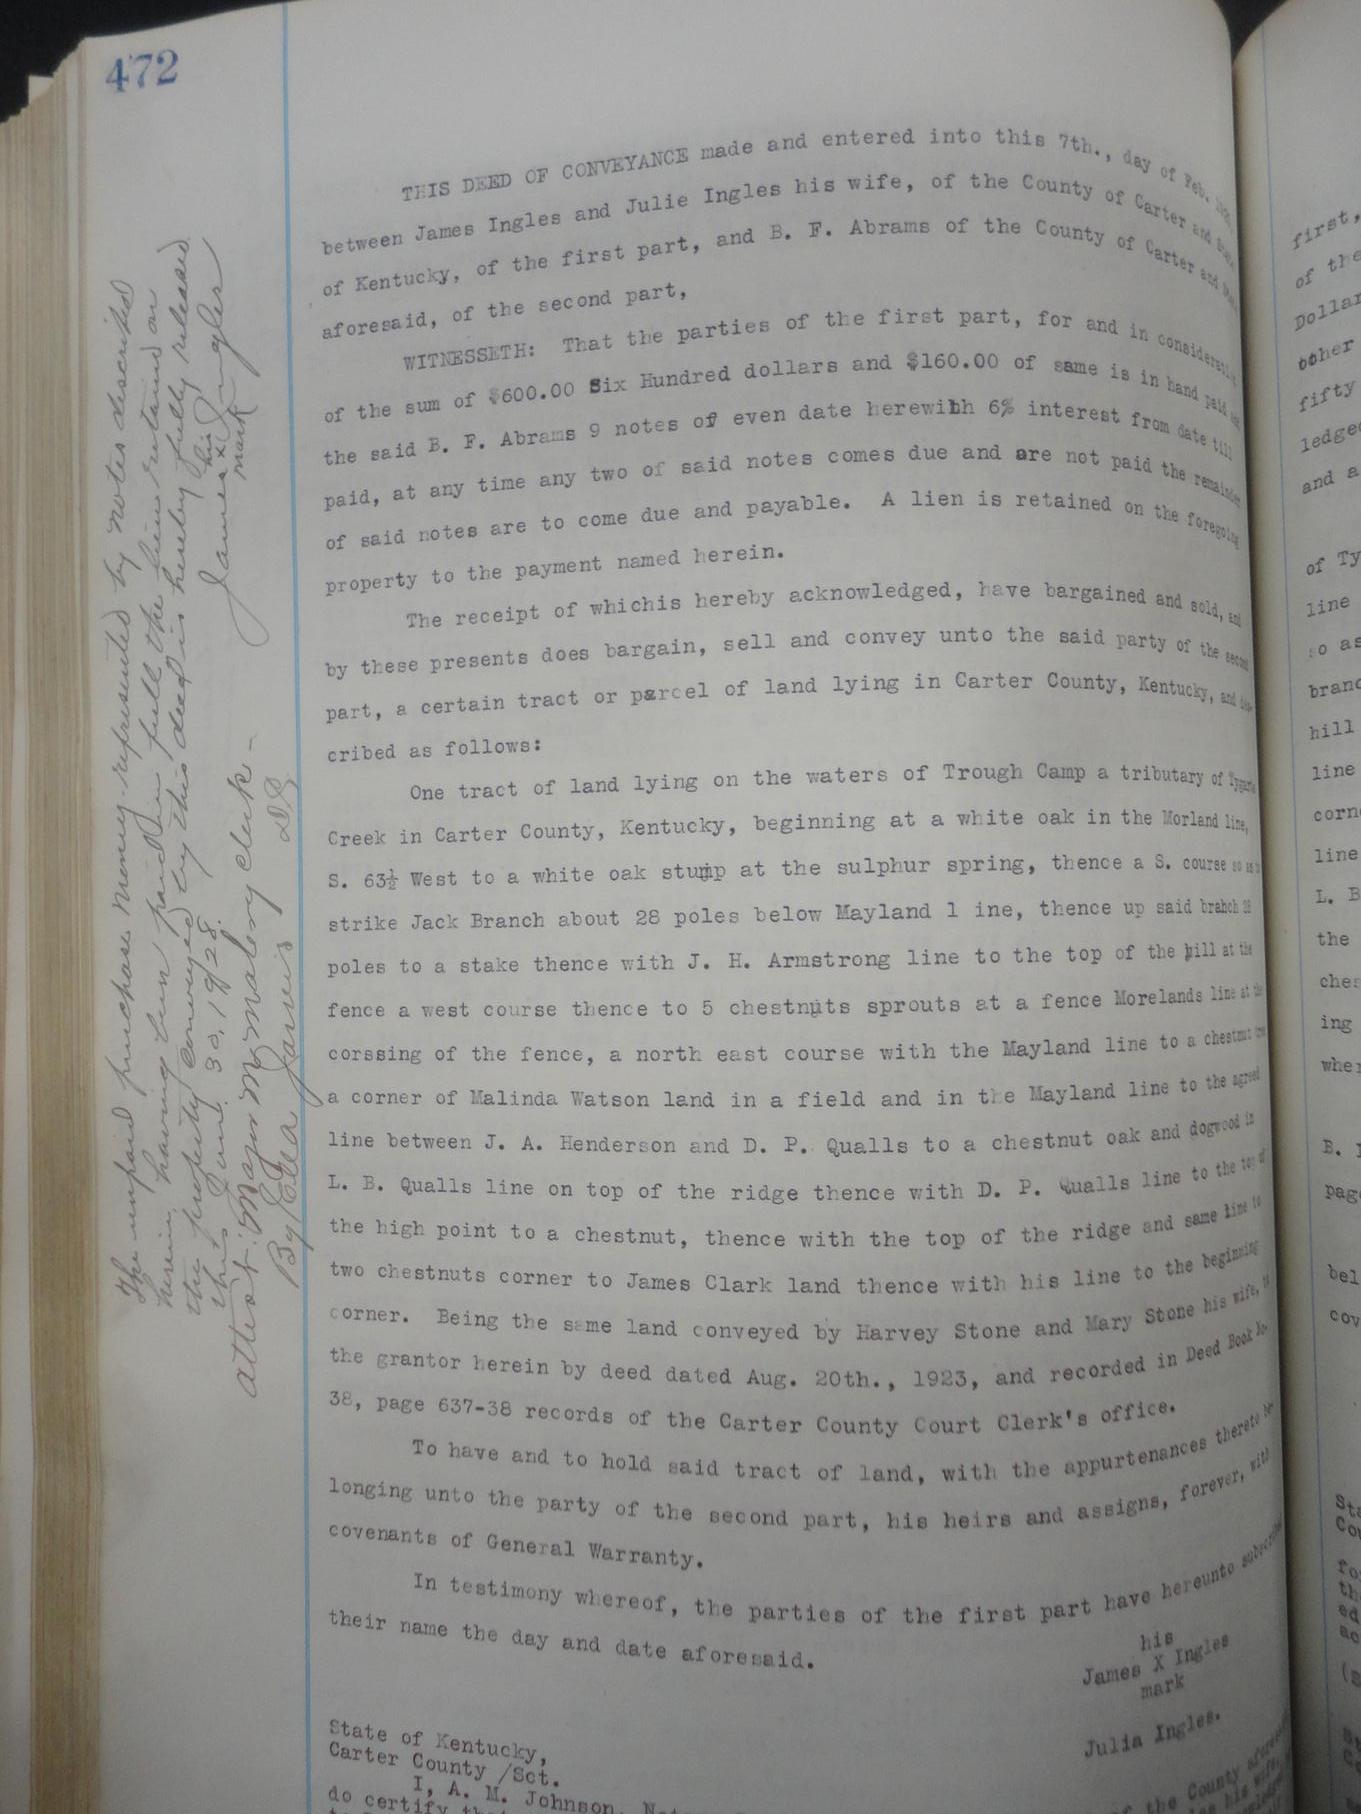 472
THIS DEED OF CONVEYANCE made and entered into this 7th., day of Feb.
between James Ingles and Julie Ingles his wife, of the County of Carter and State
of Kentucky, of the first part, and B. F. Abrams of the County of Carter and State
aforesaid, of the second part,
WITNESSETH: That the parties of the first part, for and in consideration
of the sum of $600.00 Six Hundred dollars and $160.00 of same is in hand paid and
the said B. F. Abrams 9 notes of even date herewith 6% interest from date till
paid, at any time any two of said notes comes due and are not paid the remainder
of said notes are to come due and payable. A lien is retained on the foregoing
property to the payment named herein.
The receipt of whichis hereby acknowledged, have bargained and sold, and
by these presents does bargain, sell and convey unto the said party of the second
part, a certain tract or parcel of land lying in Carter County, Kentucky, and des-
cribed as follows:
One tract of land lying on the waters of Trough Camp a tributary of Tygarts
Creek in Carter County, Kentucky, beginning at a white oak in the Morland line,
S. 63½ West to a white oak stump at the sulphur spring, thence a S. course so as to
strike Jack Branch about 28 poles below Mayland l ine, thence up said brahch 28
poles to a stake thence with J. H. Armstrong line to the top of the hill at the
fence a west course thence to 5 chestnuts sprouts at a fence Morelands line at the
corssing of the fence, a north east course with the Mayland line to a chestnut tree
a corner of Malinda Watson land in a field and in the Mayland line to the agreed
line between J. A. Henderson and D. P. Qualls to a chestnut oak and dogwood in
L. B. Qualls line on top of the ridge thence with D. P. Qualls line to the top of
the high point to a chestnut, thence with the top of the ridge and same line to
two chestnuts corner to James Clark land thence with his line to the beginning
corner. Being the same land conveyed by Harvey Stone and Mary Stone his wife, to
the grantor herein by deed dated Aug. 20th., 1923, and recorded in Deed Book No.
38, page 637-38 records of the Carter County Court Clerk's office.
To have and to hold said tract of land, with the appurtenances thereto be-
longing unto the party of the second part, his heirs and assigns, forever, with
covenants of General Warranty.
In testimony whereof, the parties of the first part have hereunto subscribed
their name the day and date aforesaid.
his
James X Ingles
mark
Julia Ingles.
State of Kentucky,
Carter County /Sct.
I, A. M. Johnson,
do certify
the County aforesaid
his wife,
The unpaid purchase money represented by notes described
herein, having been paid in full the lien retained on
the property conveyed by this deed is hereby fully released
this June 30, 1928.
his
James x Ingles
mark
attest: Major McMaloney clerk -
By Eda Jarvis DC
first,
of the
Dollar
other
fifty
and a
of Ty
line
so as
branc
hill
line
corn
line
L. B
the
ches
ing
page
bel
cov